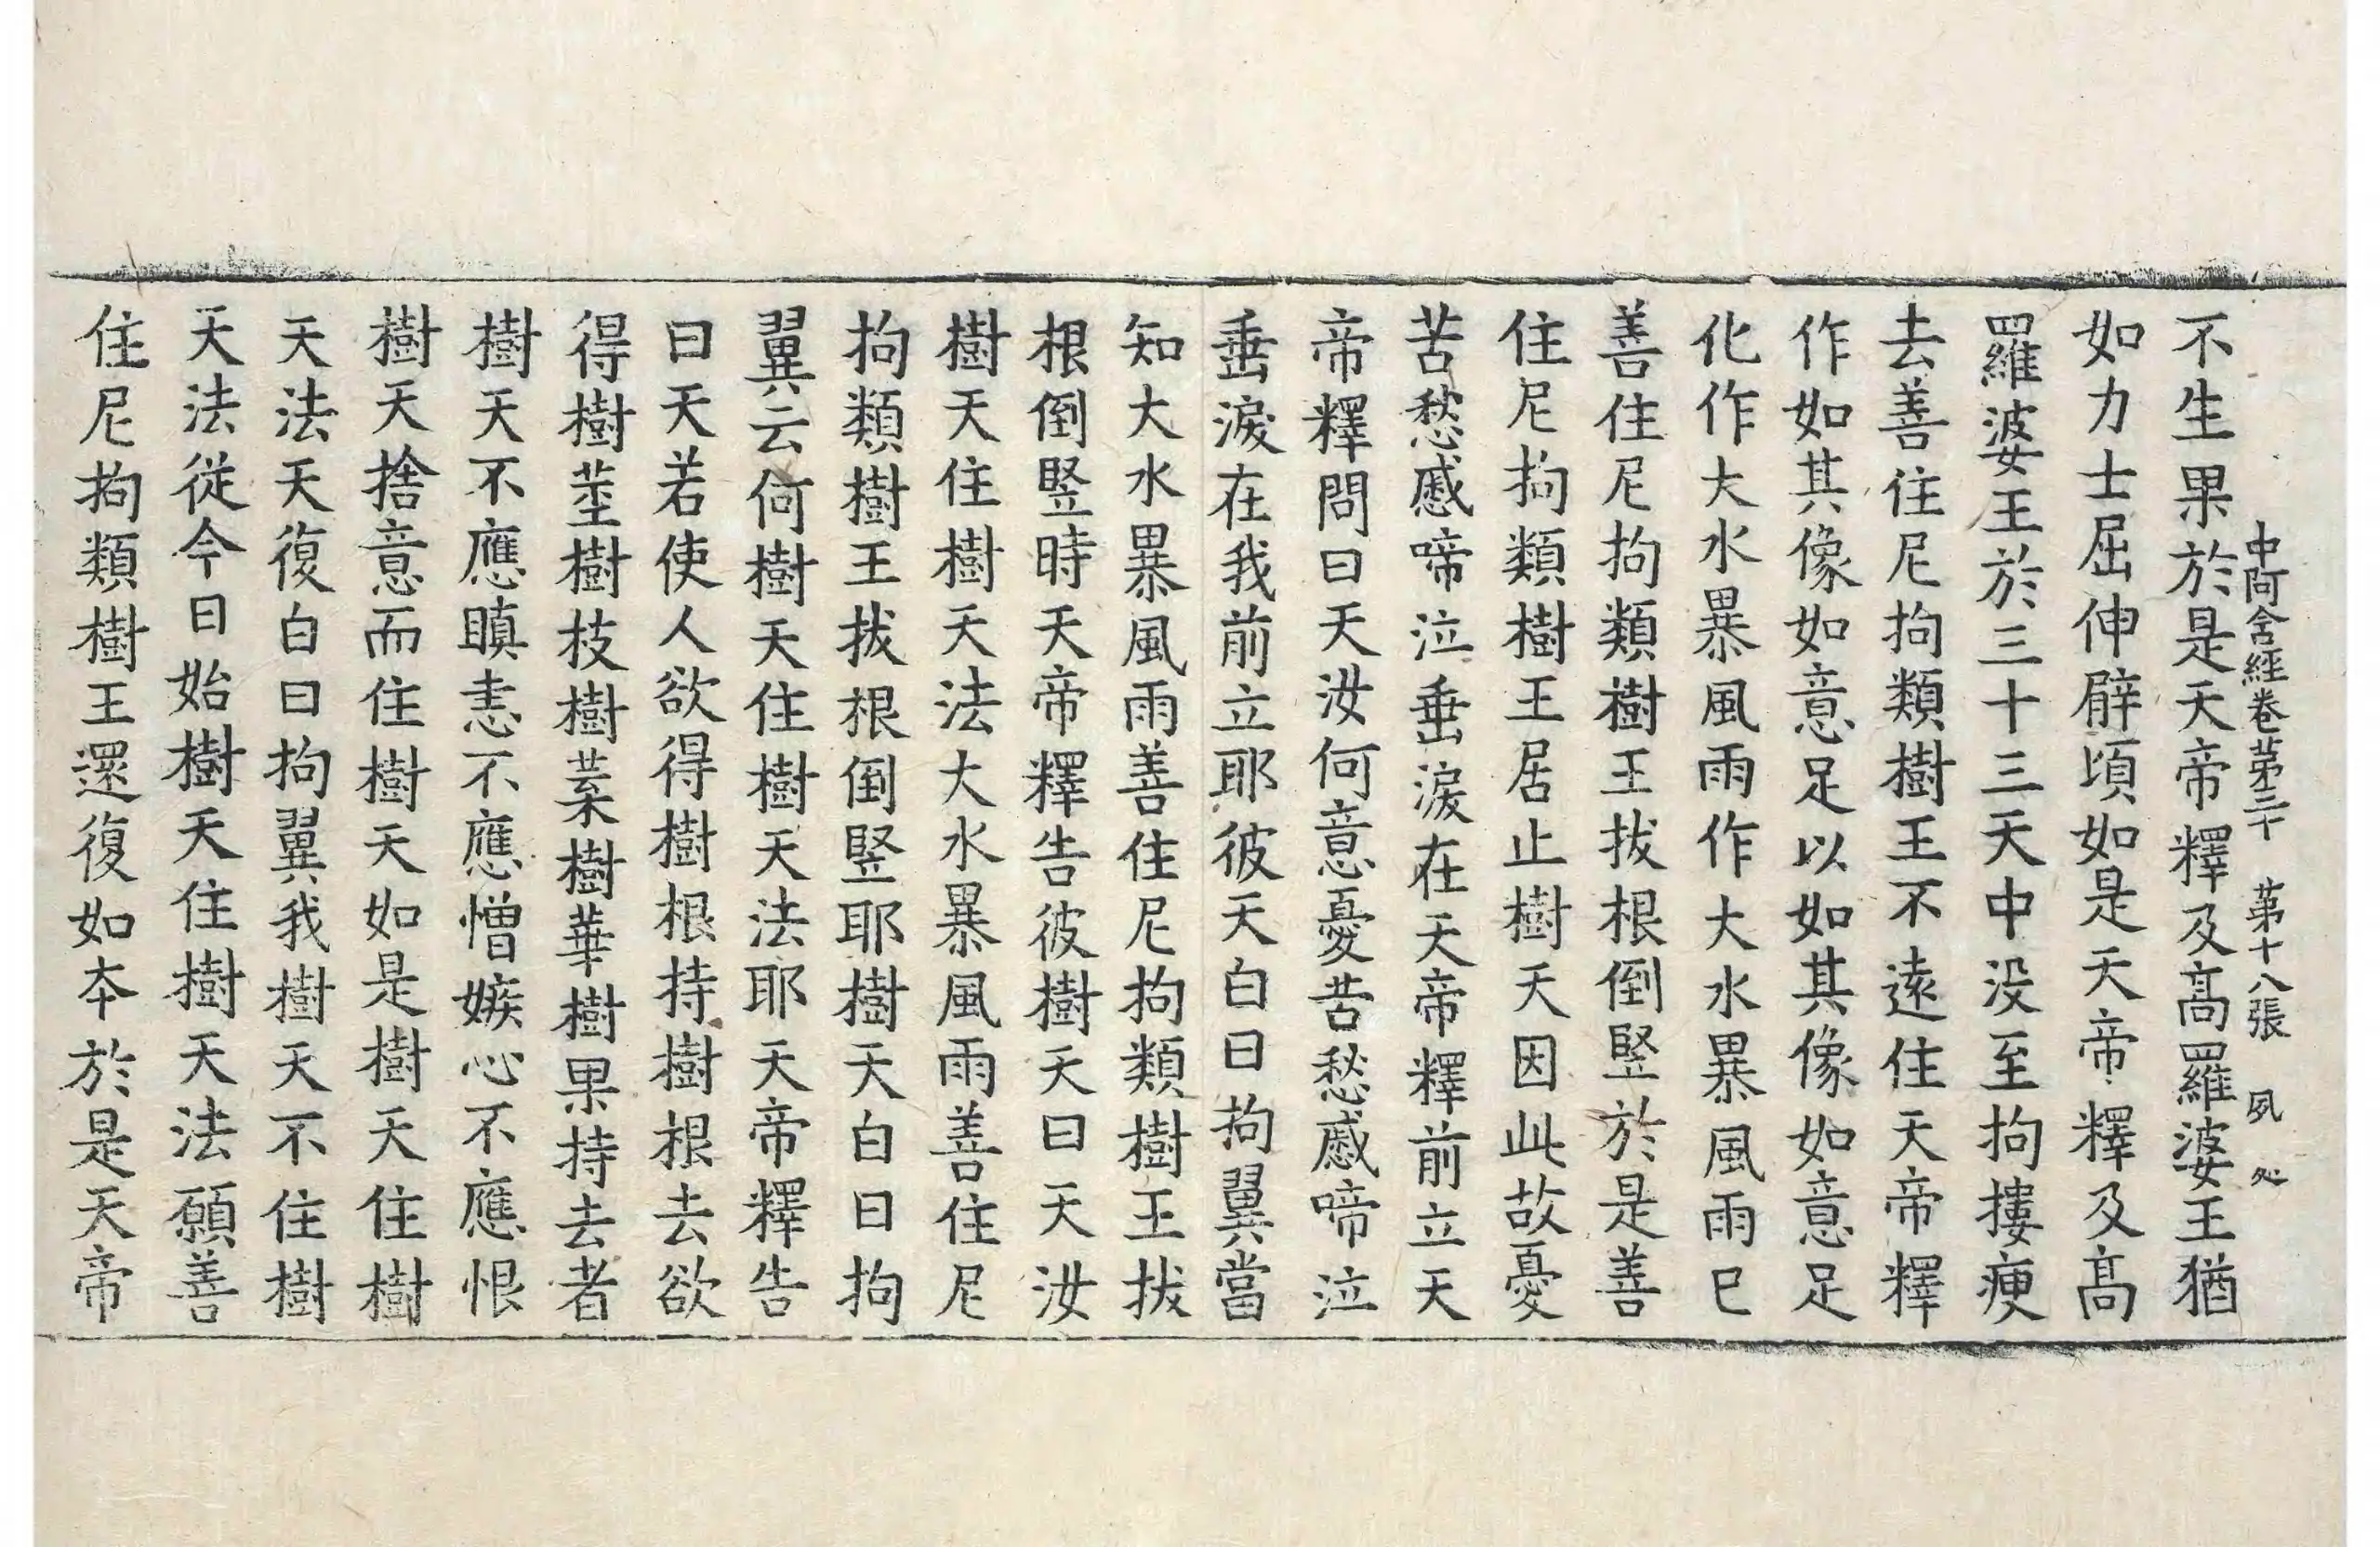 中阿含經卷第三十 第十八張 夙 処
不生果於是天帝釋及髙羅婆王猶
如力士屈伸臂頃如是天帝釋及髙
羅婆王於三十三天中没至拘摟瘦
去善住尼拘類樹王不遠住天帝釋
作如其像如意足以如其像如意足
化作大水暴風雨作大水暴風雨已
善住尼拘類樹王拔根倒竪於是善
住尼拘類樹王居止樹天因此故憂
苦愁慼啼泣垂淚在天帝釋前立天
帝釋問曰天汝何意憂苦愁慼啼泣
垂淚在我前立耶彼天白曰拘翼當
知大水暴風雨善住尼拘類樹王拔
根倒竪時天帝釋告彼樹天曰天汝
樹天住樹天法大水暴風雨善住尼
拘類樹王拔根倒竪耶樹天白曰拘
翼云何樹天住樹天法耶天帝釋告
曰天若使人欲得樹根持樹根去欲
得樹莖樹枝樹葉樹華樹果持去者
樹天不應瞋恚不應憎嫉心不應恨
樹天捨意而住樹天如是樹天住樹
天法天復白曰拘翼我樹天不住樹
天法從今日始樹天住樹天法願善
住尼拘類樹王還復如本於是天帝